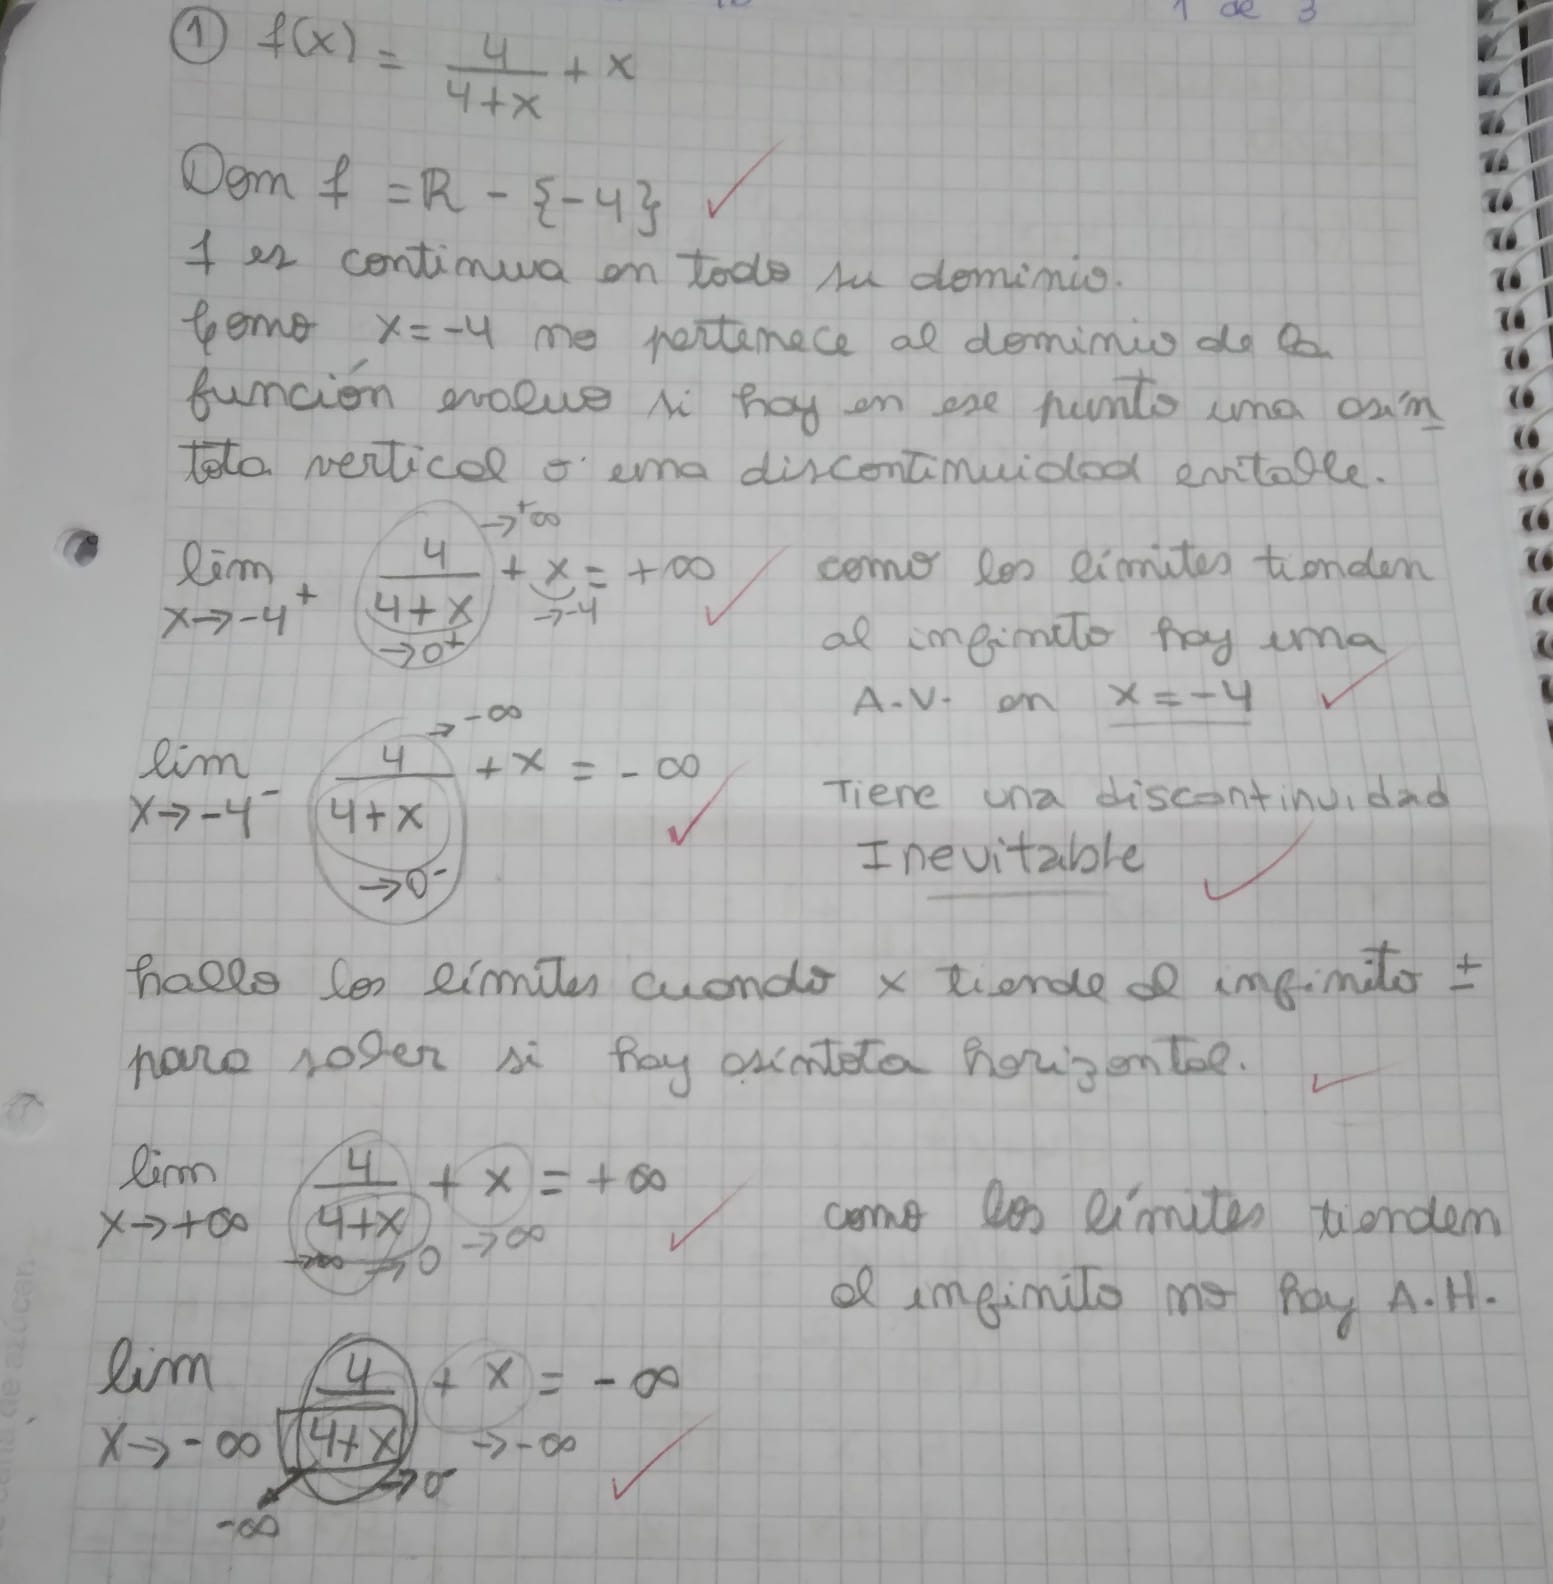 1 de 3
① f(x) = 4/(4+x) + x
Dom f = ℝ - {-4}
f es continua en todo su dominio.
Como x=-4 no pertenece al dominio de la
función evaluo si hay en ese punto una asín
tota vertical o una discontinuidad evitable.
lim x→-4⁺ 4/(4+x) + x = +∞
→+∞
→0⁺
→-4
como los límites tienden
al infinito hay una
A.V. en x=-4
lim x→-4⁻ 4/(4+x) + x = -∞
→-∞
→0⁻
Tiene una discontinuidad
Inevitable
hallo los límites cuando x tiende al infinito ±
para saber si hay asintota horizontal.
lim x→+∞ 4/(4+x) + x = +∞
→∞ →0 →∞
como los límites tienden
al infinito no hay A.H.
lim x→-∞ 4/(4+x) + x = -∞
→-∞
→0⁻
-∞